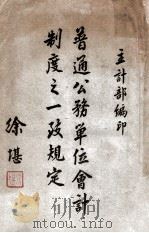 主計部編印
普通公務單位會計
制度之一致規定
徐堪